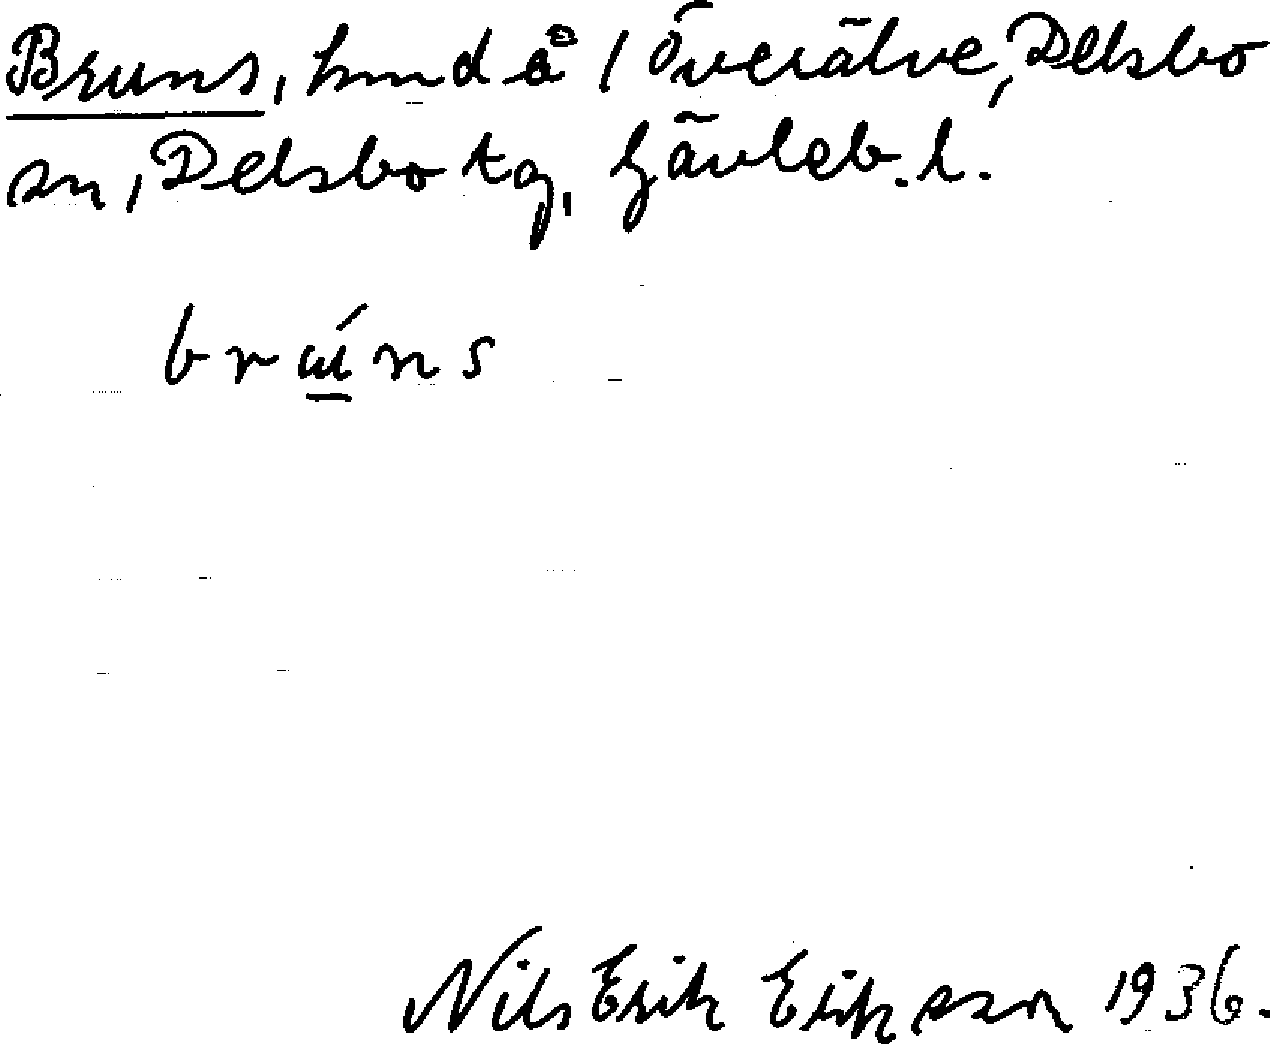 Bruns, hmd å 1 Överälve, Delsbo
sn, Delsbo tg, Gävleb. l.
Nils Erik Eriksson 1936.